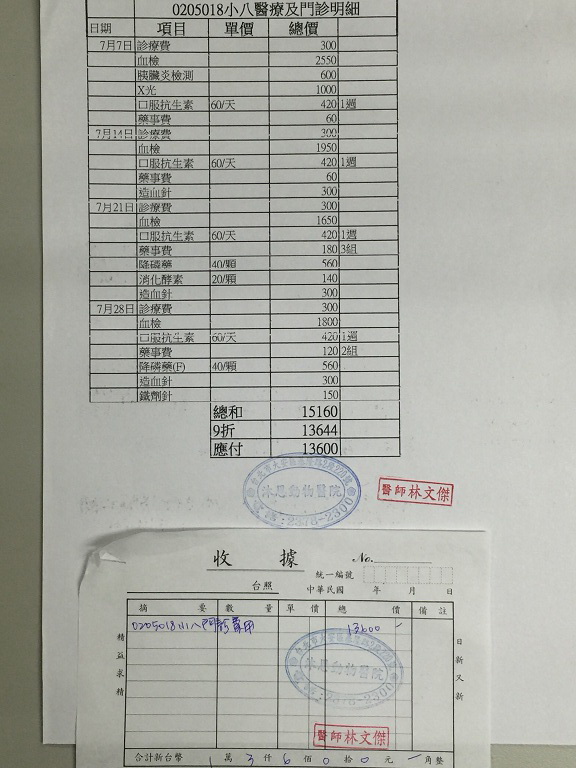 0205018小八醫療及門診明細
日期 項目 單價 總價
7月7日 診療費 300
血檢 2550
胰臟炎檢測 600
X光 1000
口服抗生素 60/天 420 1週
藥事費 60
7月14日 診療費 300
血檢 1950
口服抗生素 60/天 420 1週
藥事費 60
造血針 300
7月21日 診療費 300
血檢 1650
口服抗生素 60/天 420 1週
藥事費 180 3組
降磷藥 40/顆 560
消化酵素 20/顆 140
造血針 300
7月28日 診療費 300
血檢 1800
口服抗生素 60/天 420 1週
藥事費 120 2組
降磷藥(F) 40/顆 560
造血針 300
鐵劑針 150
總和 15160
9折 13644
應付 13600
沐恩動物醫院
電話:2378-2300
醫師林文傑
收據 No.
統一編號
台照 中華民國 年 月 日
摘要 數量 單價 總價 備註
0205018小八門診費用 13600
精益求精
日新又新
沐恩動物醫院
醫師林文傑
合計新台幣 1 萬 3 仟 6 佰 0 拾 0 元 角整